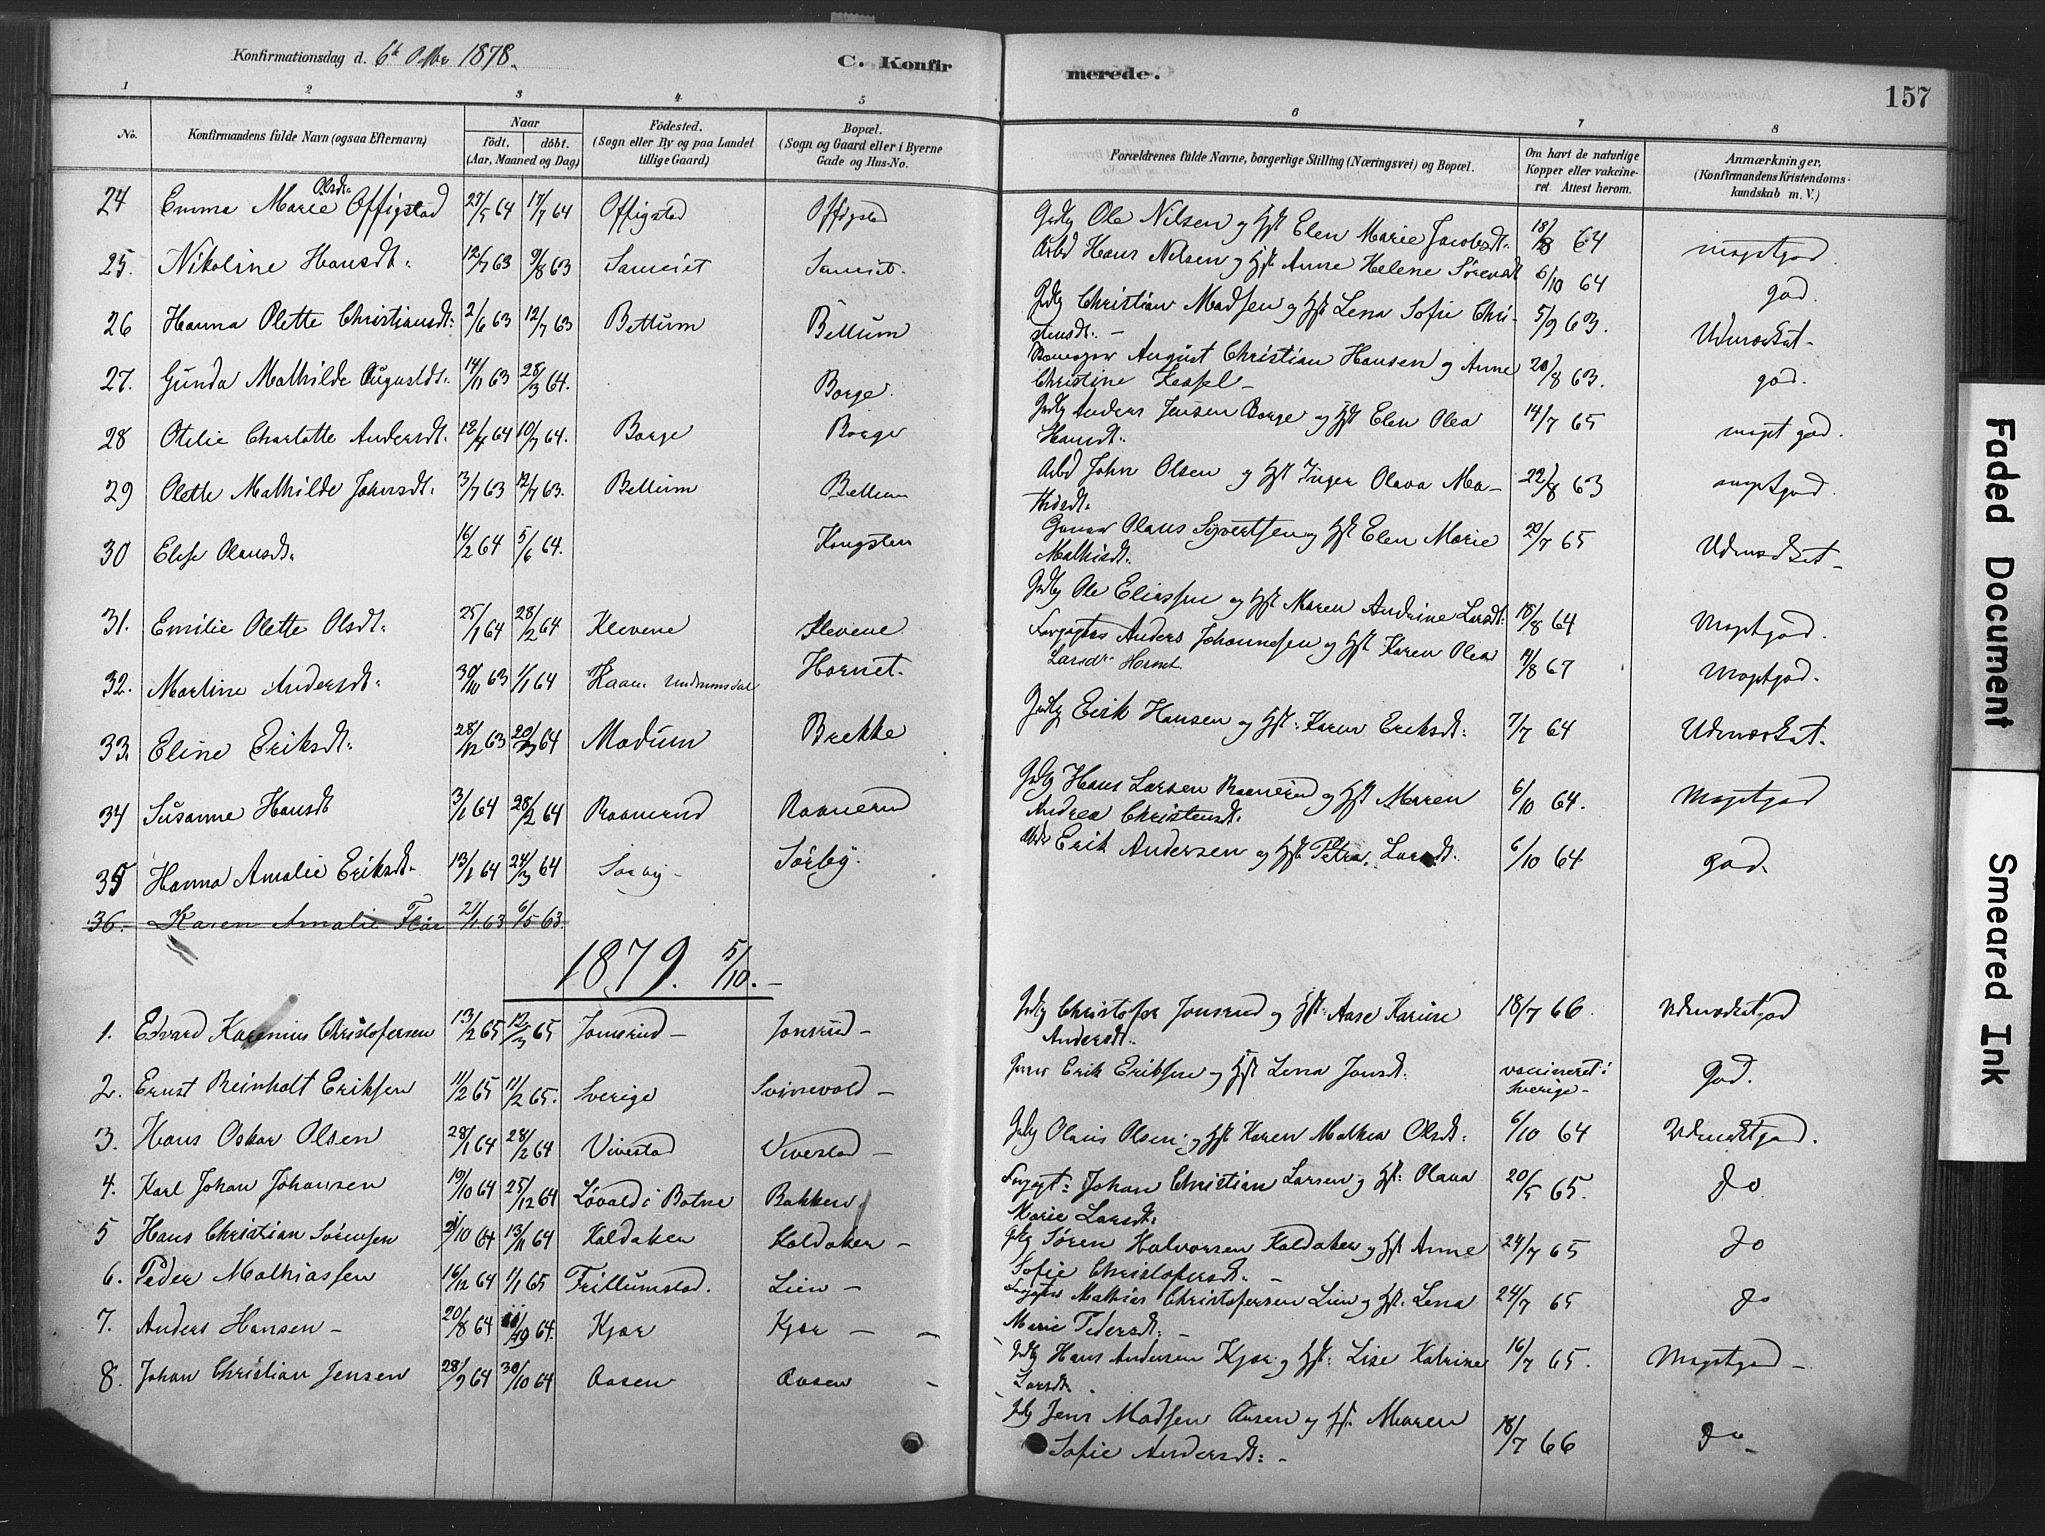 Konfirmationsdag d. 6te Octbr 1878.
C. Konfirmerede.
157
1 2 3 4 5 6 7 8
No.
Konfirmandens fulde Navn (ogsaa Efternavn)
Naar
født. døbt.
(Aar, Maaned og Dag)
Fødested.
(Sogn eller By og paa Landet tillige Gaard)
Bopæl.
(Sogn og Gaard eller i Byerne Gade og Hus-No.
Forældrenes fulde Navne, borgerlige Stilling (Næringsvei) og Bopæl.
Om havt de naturlige Kopper eller vakcineret. Attest herom.
Anmærkninger.
(Konfirmandens Kristendomskundskab m. V.)
24 Emma Marie Olsdt: Offigstad 27/5 64 17/7 64 Offigstad Offigstad Ole Nilsen og Hst Elen Marie Jacobsdt: 18/8 64 megetgod.
25. Nikoline Hansdt: 12/7 63 9/8 63 Sameiet Sameiet. Arbd Hans Nilsen og Hst Anne Helene Sørensdt 6/10 64 god.
26 Hanna Olette Christiansdt: 2/6 63 12/7 63 Bettum Bettum Christian Madsen og Hst Lena Sofie Christensdt: - 5/9 63. Udmærket-
27. Gunda Mathilde Augustdt: 14/11 63 28/3 64. Borge. August Christian Hansen og Anne Christine - 20/8 63. god.
28 Otilie Charlotte Andersdt: 12/4 64 10/7 64. Borge Borge Anders Jensen Borge og Hst Elen Olea Hansdt: 14/7 65 meget god.
29 Olette Mathilde Johnsdt: 3/7 63 12/7 63. Bettum Bettum Arbd John Olsen og Hst Inger Olava Mathisdt: 22/8 63 megetgod.
30 Elise Olausdt: 16/2 64 5/6 64. Kongsten Olaus Syvertsen og Hst Elen Marie Mathisdt: 20/7 65 Udmærket-
31. Emilie Olette Olsdt: 25/1 64 28/2 64 Klevene Klevene Ole Eliassen og Hst Maren Andrine Larsdt: 18/8 64 Megetgod.
32. Martine Andersdt: 30/10 63 1/1 64 Undrumsdal Hornet. Anders Johannesen og Hst Karen Olea Larsdt Hornet 9/8 67 Megetgod.
33. Eline Eriksdt: 28/12 63 20/3 64 Modum Brekke Eirk Hansen og Hst: Karen Eriksdt: 7/7 64 Udmærket.
34 Susanne Hansdt 3/1 64 28/2 64 Raanerud Raanerud Hans Larsen Raanerud og Hst Maren Andrea Christensdt: 6/10 64. Megetgod
35 Hanna Amalie Eriksdt. 13/1 64 24/3 64 Sørby- Sørby. Erik Andersen og Hst Petra Larsdt: 6/10 64 god.
36. Karen Amalie 21/1 63 6/5 63.
1879. 5/10.-
1. Edvard Karenius Christofersen 13/2 65 12/3 65 Jonsrud- Jonsrud- Christofer Jonsrud og Hst: Aase Karine Andersdt: 18/7 66. Udmærketgod
2. Ernst Reinholt Eriksen 11/2 65 11/2 65. Sverige Svinevold- Erik Eriksen og Hst Lena Jonsdt: vaccineret i Sverige- God.
3. Hans Oskar Olsen 28/1 64 28/2 64 Vivestad Vivestad- Olaus Olsen og Hst Karen Mathea Olsdt: 6/10 64 Udmærketgod.
4. Karl Johan Johansen 19/10 64 25/12 64 Løvald i Botne Bakken Johan Christian Larsen og Hst: Olava Marie Larsdt: 20/5 65. Do.
5 Hans Christian Sørensen 21/10 64 13/11 64 Koldaker Koldaker- Søren Halvorsen Koldaker og Hst Anne Sofie Christofersdt:- 24/7 65 Do
6. Peder Mathiassen 16/12 64 1/1 65 Trillumstad. Lien- Mathias Christofersen Lien og Hst: Lena Marie Pedersdt:- 24/7 65 Do
7. Anders Hansen- 20/8 64 Kjær Kjær- Hans Andersen Kjær og Hst: Lise Katrine Larsdt. 16/7 65. Megetgod-
8. Johan Christian Jensen 28/9 64 30/10 64 Aasen Aasen - Jens Madsen Aasen og Hst: Maren Sofie Andersdt:- 18/7 66 Do-
Faded Document
Smeared Ink